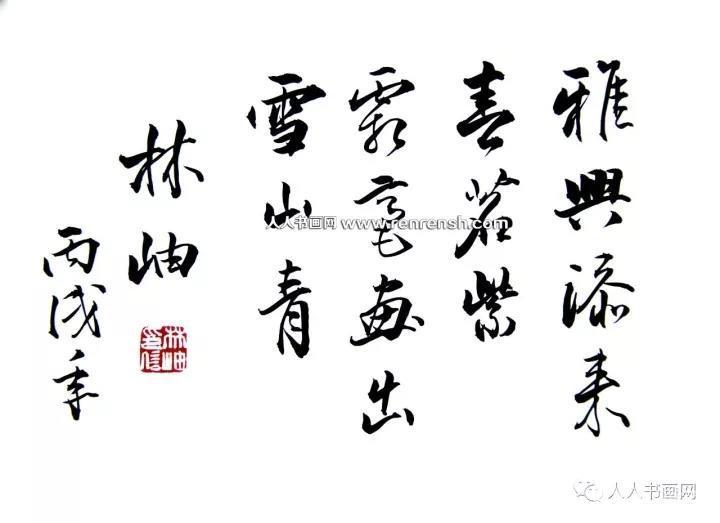 雅興添来
春茗紫
霜毫畫出
雪山青
林岫
丙戌年
林岫印信
人人书画网 www.renrensh.com
人人书画网